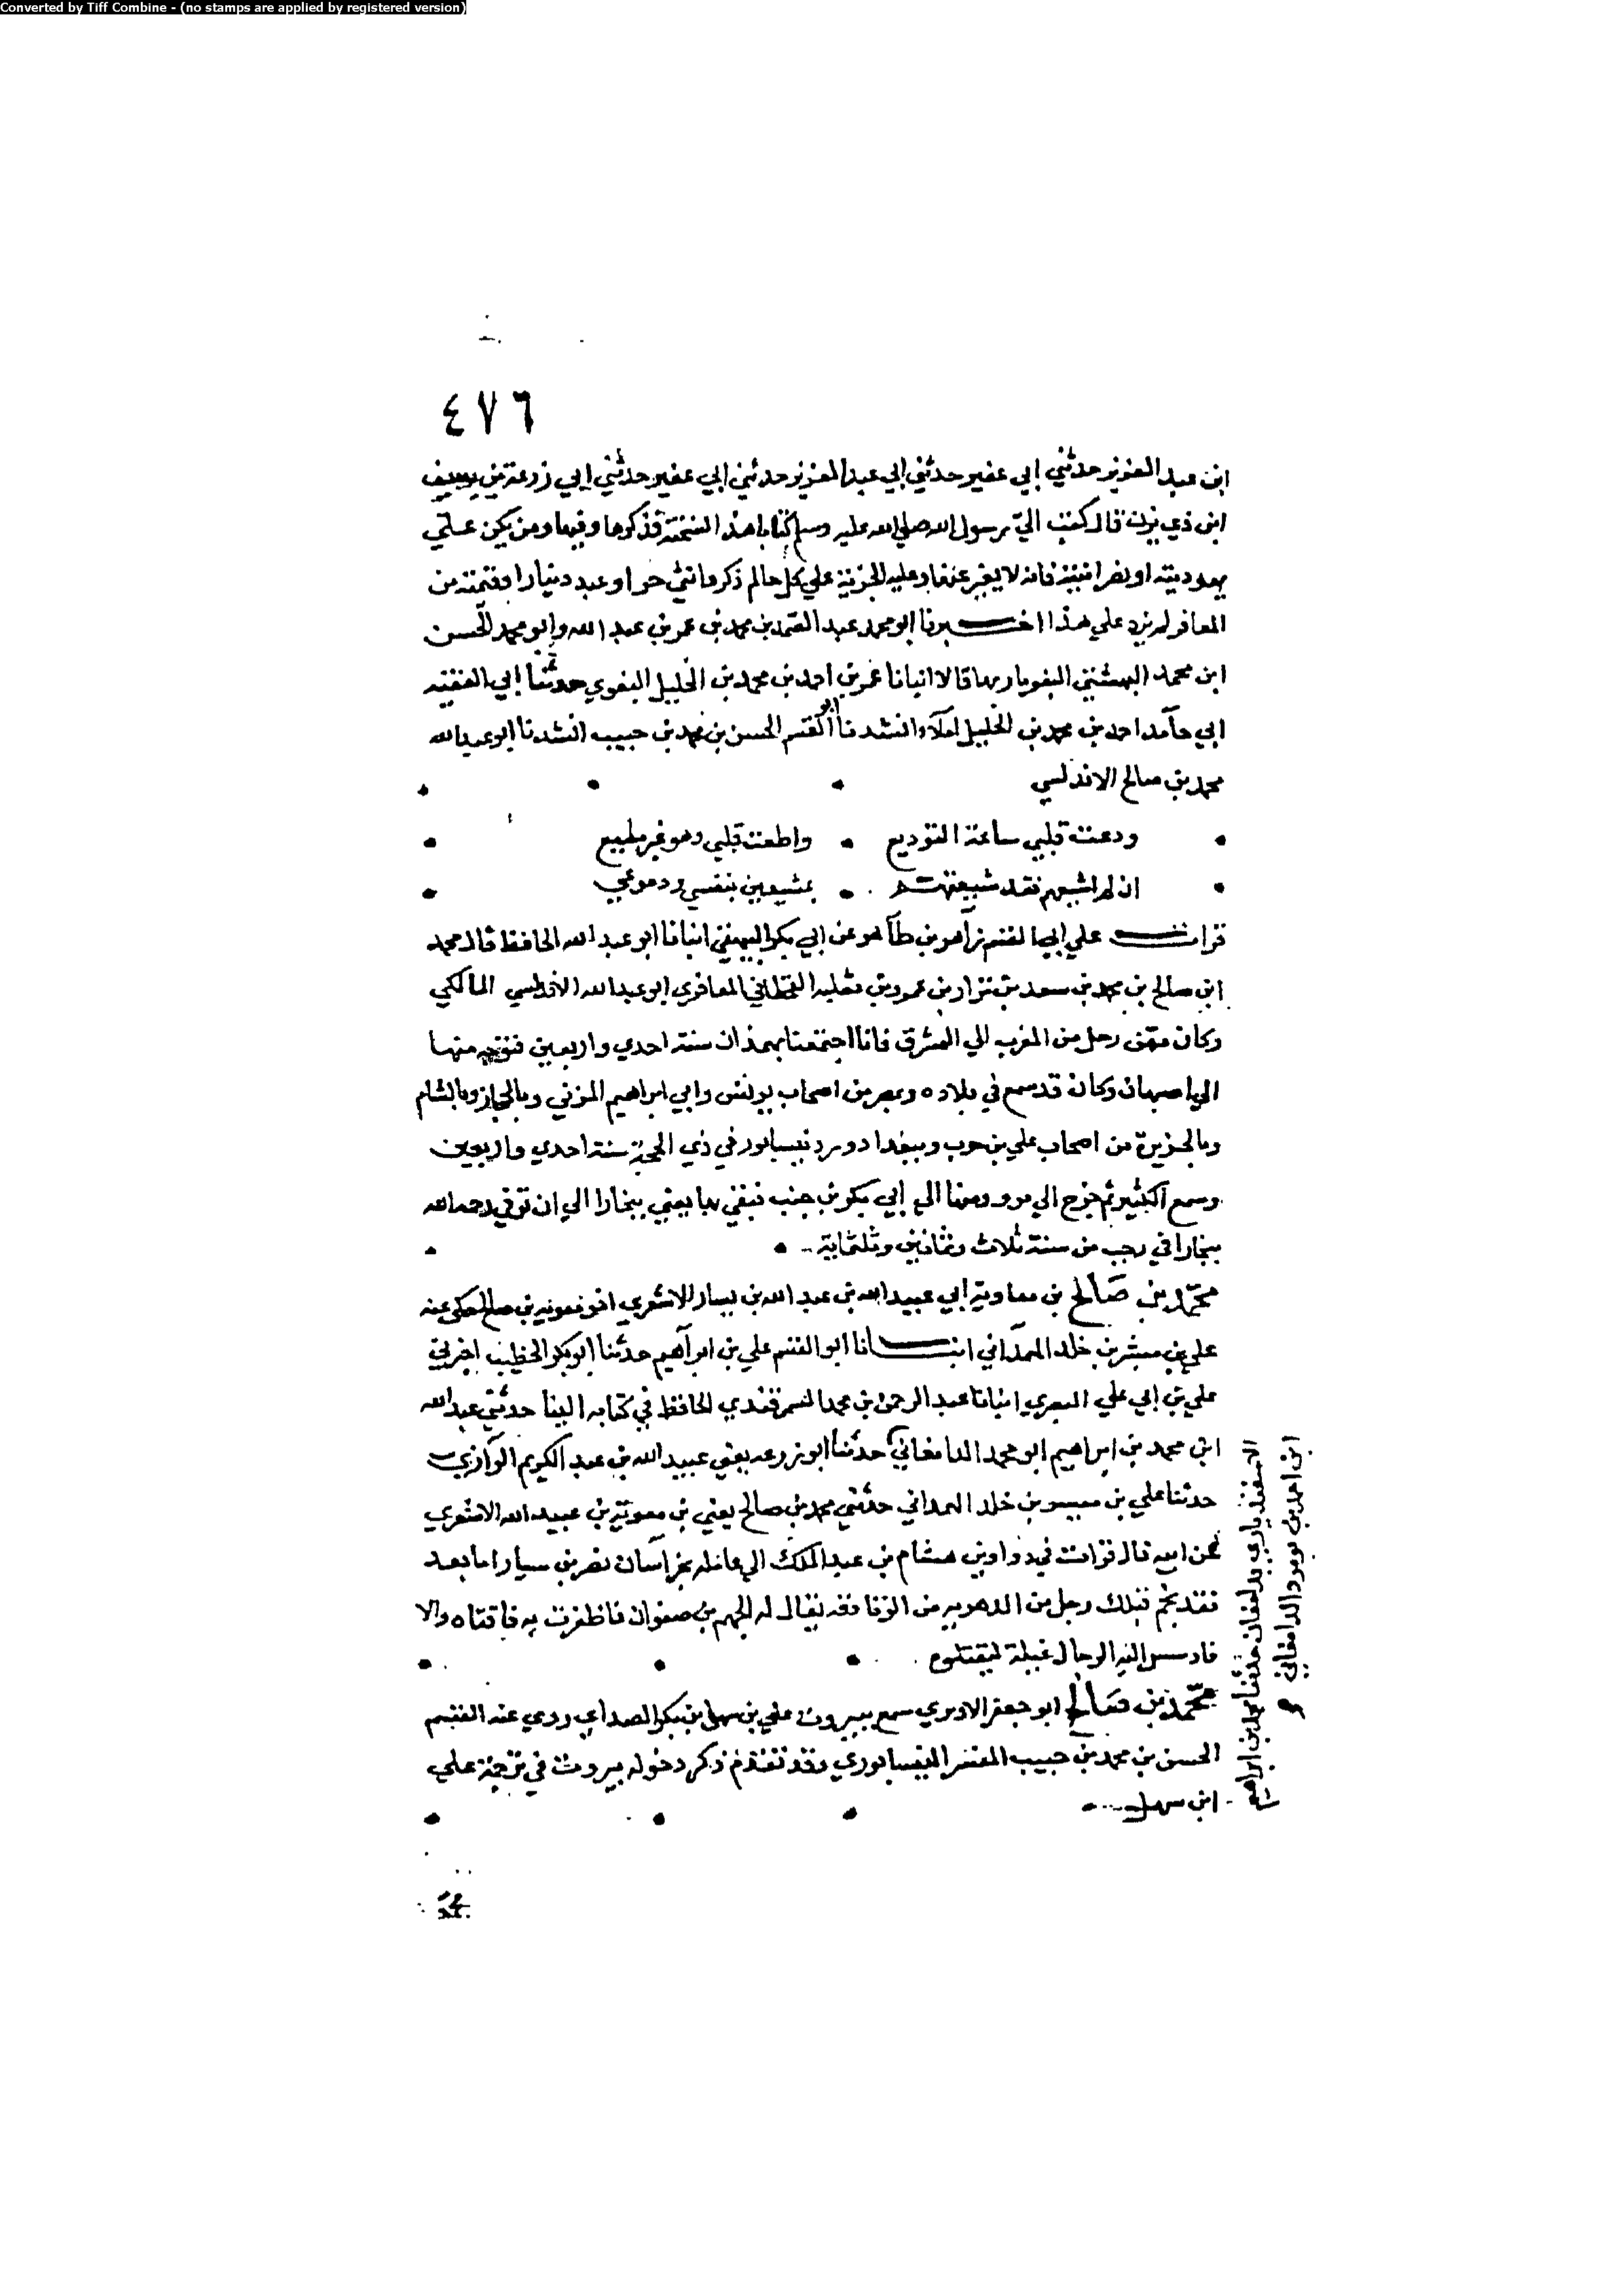 Converted by Tiff Combine - (no stamps are applied by registered version)
٤٧٦
ابن عبد العزيز حدثني ابي عفير حدثني ابي عبد العزيز حدثني ابي عفير حدثني ابي زرعة بن سيف
ابن ذي يزن قال كتب الي رسول الله صلي الله عليه وسلم كتابا هذا النسخة فذكرها وفيها ومن يكن علي
يهوديته او نصرانيته فانه لا يغير عنها وعليه الجزية علي كل حالم ذكر وانثي حر او عبد دينارا وقيمته من
المعافر لم يزد علي هذا اخبرنا ابو محمد عبد الصمد بن محمد بن عمر بن عبد الله وابو محمد الحسن
ابن محمد قالا انبانا عمر بن احمد بن محمد بن الخليل البغوي حدثنا ابي الفقيه
ابي حامد احمد بن محمد بن الخليل املآء انشدنا ابو القسم الحسن بن محمد بن حبيب انشدنا ابو عبد الله
محمد بن صالح الاندلسي
ودعت قلبي ساعة التوديع واطعت قلبي وهو غير مطيع
ان لم اشيعهم فقد شيعتهم بمشيعين بنفسي ودموعي
قرات علي ابي القسم زاهر بن طاهر عن ابي بكر البيهقي انبانا ابو عبد الله الحافظ قال محمد
ابن صالح بن محمد بن سعد بن نزار بن عمرو بن ثعلبه القحطاني المعافري ابو عبد الله الاندلسي المالكي
وكان ممن رحل من المغرب الي المشرق فانا اجتمعنا بهمذان سنة احدي واربعين فتوجه منها
الي اصبهان وكان قد سمع في بلاده وبمصر من اصحاب يونس وابي ابراهيم المزني وبالحجاز وبالشام
وبالجزيرة من اصحاب علي بن حرب وببغداد وورد نيسابور في ذي الحجة سنة احدي واربعين
وسمع الكثير ثم خرج الي مرو ومنها الي ابي بكر بن حنب فبقي بها يعني ببخارا الي ان توفي رحمه الله
ببخارا في رجب من سنة ثلاث وثمانين وثلثماية
محمد بن صالح بن معاوية ابي عبيد الله بن عبد الله بن يسار الاشعري اخو معويه بن صالح حكي عنه
علي بن ميسر بن خلد الهمداني انبانا ابو القسم علي بن ابراهيم حدثنا ابو بكر الخطيب اخبرني
علي بن ابي علي البصري انبانا عبد الرحمن بن محمد السمرقندي الحافظ في كتابه الينا حدثني عبد الله
ابن محمد بن ابراهيم ابو محمد الدامغاني حدثنا ابو زرعه يعني عبيد الله بن عبد الكريم الرازي
حدثنا علي بن ميسر بن خلد الهمداني حدثني محمد بن صالح يعني بن معوية بن عبيد الله الاشعري
عن ابيه قال قرات في دواوين هشام بن عبد الملك الي عامله بخراسان نصر بن سيار اما بعد
فقد نجم قبلك رجل من الدهريه من الزنادقه يقال له الجهم بن صفوان فان ظفرت به فاقتله والا
فادسس اليه الرجال غيلة ليقتلوه
محمد بن صالح ابو جعفر سمع ببيروت علي بن سهل بن بكر الصداي روي عنه القسم
الحسن بن محمد بن حبيب المفسر النيسابوري وقد تقدم ذكر دخوله بيروت في ترجمة علي
ابن سهل
الاسفندياري بدامغان حدثنا محمد بن ابراهيم
ابن احمد بن الدامغاني
محمد